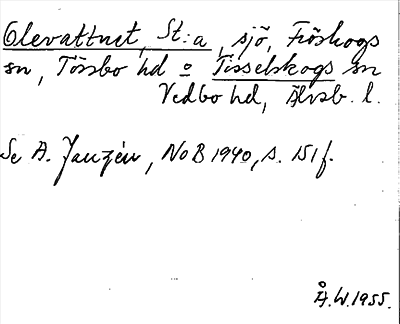 Olevattnet, St:a, sjö, Fröskogs
sn, Tössbo hd o Tisselskogs sn
Vedbo hd, Älvsb. l.
Se A. Janzén, NoB 1940, s. 151 f.
Å.W. 1955.